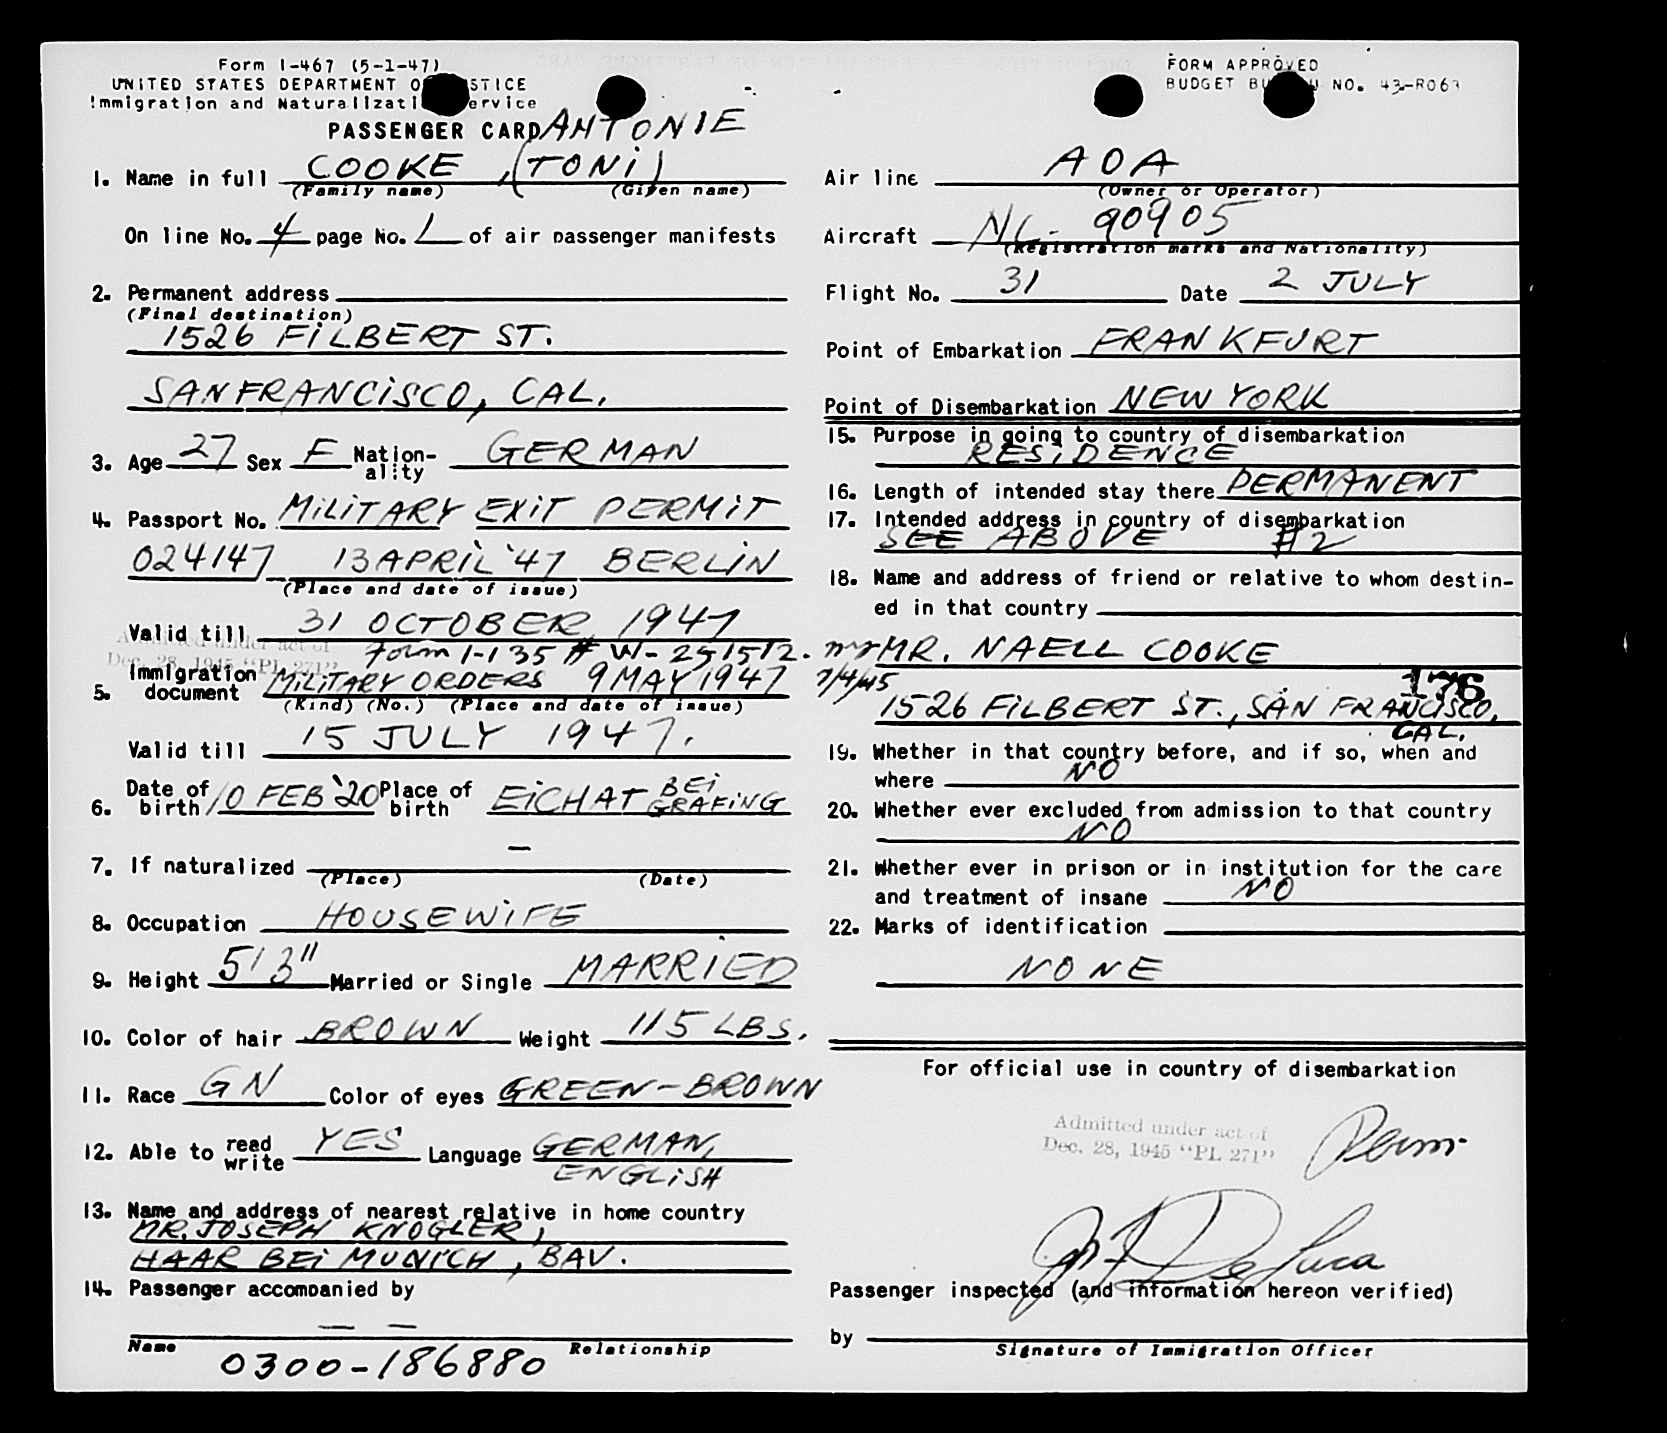 Form I-467 (5-1-47)
UNITED STATES DEPARTMENT O STICE
Immigration and Naturalizati ervice
FORM APPROVED
BUDGET BU U NO. 43-R063
PASSENGER CARD ANTONIE
1. Name in full COOKE, (TONI)
(Family name) (Given name)
On line No. 4 page No. 1 of air passenger manifests
2. Permanent address
(Final destination)
1526 FILBERT ST.
SAN FRANCISCO, CAL.
3. Age 27 Sex F Nation-ality GERMAN
4. Passport No. MILITARY EXIT PERMIT
024147 13 APRIL '47 BERLIN
(Place and date of issue)
Valid till 31 OCTOBER 1947
Admitted under act of
Dec. 28, 1945 "PL 271"
Form I-135 # W-251512.
5. Immigration document MILITARY ORDERS 9 MAY 1947
(Kind) (No.) (Place and date of issue)
7/4/45
Valid till 15 JULY 1947.
6. Date of birth 10 FEB '20 Place of birth EICHAT BEI GRAFING
7. If naturalized —
(Place) (Date)
8. Occupation HOUSEWIFE
9. Height 5'3" Married or Single MARRIED
10. Color of hair BROWN Weight 115 LBS.
11. Race GN Color of eyes GREEN-BROWN
12. Able to read write YES Language GERMAN,
ENGLISH
13. Name and address of nearest relative in home country
MR. JOSEPH KNOGLER,
HAAR BEI MUNICH, BAV.
14. Passenger accompanied by
— —
Name Relationship
0300-186880
Air line AOA
(Owner or Operator)
Aircraft NC- 90905
(Registration marks and Nationality)
Flight No. 31 Date 2 JULY
Point of Embarkation FRANKFURT
Point of Disembarkation NEW YORK
15. Purpose in going to country of disembarkation
RESIDENCE
16. Length of intended stay there PERMANENT
17. Intended address in country of disembarkation
SEE ABOVE #2
18. Name and address of friend or relative to whom destin-
ed in that country
MR. NAELL COOKE
176
1526 FILBERT ST., SAN FRANCISCO,
CAL.
19. Whether in that country before, and if so, when and
where NO
20. Whether ever excluded from admission to that country
NO
21. Whether ever in prison or in institution for the care
and treatment of insane NO
22. Marks of identification
NONE
For official use in country of disembarkation
Admitted under act of
Dec. 28, 1945 "PL 271"
Perm
De Luca
Passenger inspected (and information hereon verified)
by
Signature of Immigration Officer